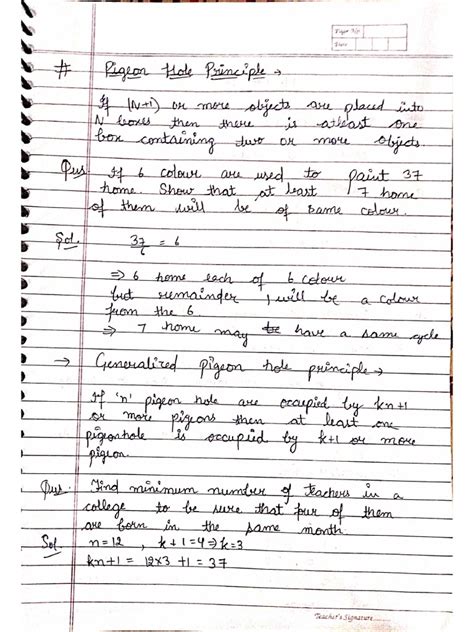 Page No.
Date
# Pigeon Hole Principle →
If (N+1) or more objects are placed into
N boxes then there is atleast one
box containing two or more objects.
Ques If 6 colour are used to paint 37
home. Show that at least 7 home
of them will be of same colour.
Sol. 37/6 = 6
⇒ 6 home each of 6 colour
but remainder 1 will be a colour
from the 6.
⇒ 7 home may have a same cycle
→ Generalized pigeon hole principle →
If 'n' pigeon hole are occupied by kn+1
or more pigeons then at least one
pigeonhole is occupied by k+1 or more
pigeon.
Ques. Find minimum number of teachers in a
college to be sure that four of them
are born in the same month.
Sol n=12 , k+1=4 ⇒ k=3
kn+1 = 12×3 +1 = 37
Teacher's Signature